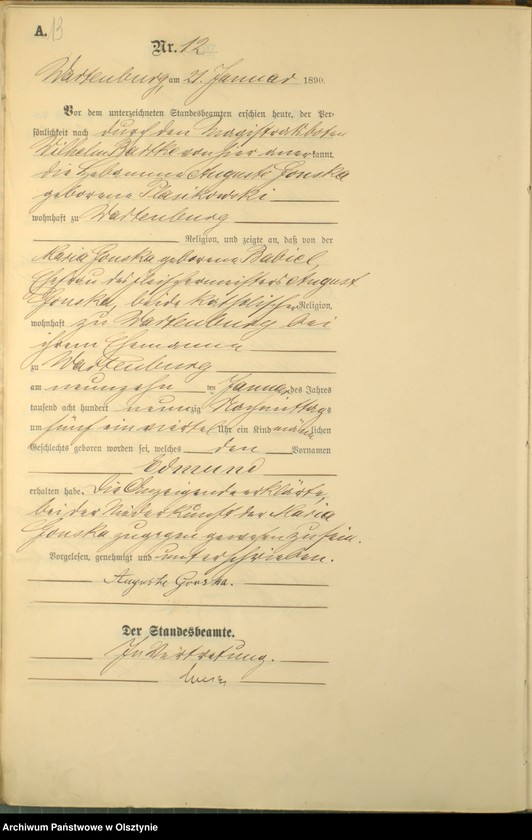 A. 13
Nr. 12
Wartenburg, am 21. Januar 1890.
Vor dem unterzeichneten Standesbeamten erschien heute, der Per-
sönlichkeit nach durch den Magistratsboten
Wilhelm von hier anerkannt,
die Hebamme Auguste Gonska
geborene
wohnhaft zu Wartenburg
Religion, und zeigte an, daß von der
Maria Gonska geborene Babiel,
Ehefrau des Fleischermeisters August
Gonska, beide katholischer Religion,
wohnhaft zu Wartenburg bei
ihrem Ehemanne
zu Wartenburg
am neunzehn ten Januar des Jahres
tausend acht hundert neunzig Nachmittags
um fünf ein viertel Uhr ein Kind männlichen
Geschlechts geboren worden sei, welches den Vornamen
Edmund
erhalten habe. Die Anzeigende erklärte,
bei der Niederkunft der Maria
Gonska zugegen gewesen zu sein.
Vorgelesen, genehmigt und unterschrieben.
Auguste Gonska.
Der Standesbeamte.
In Vertretung.
Archiwum Państwowe w Olsztynie